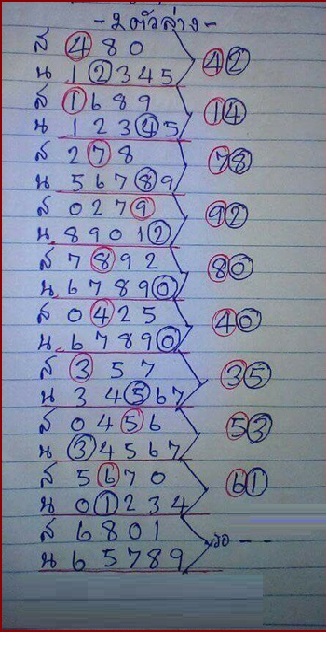 -2ตัวล่าง-
ส 4 8 0
น 1 2 3 4 5
42
ส 1 6 8 9
น 1 2 3 4 5
14
ส 2 7 8
น 5 6 7 8 9
78
ส 0 2 7 9
น 8 9 0 1 2
92
ส 7 8 9 2
น 6 7 8 9 0
80
ส 0 4 2 5
น 6 7 8 9 0
40
ส 3 5 7
น 3 4 5 6 7
35
ส 0 4 5 6
น 3 4 5 6 7
53
ส 5 6 7 0
น 0 1 2 3 4
61
ส 6 8 0 1
น 6 5 7 8 9
รอ ---